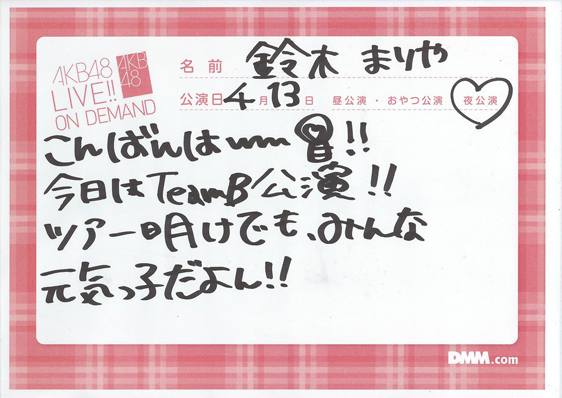 AKB48
LIVE!!
ON DEMAND
AKB
48
名前 鈴木 まりや
公演日 4月13日 昼公演・おやつ公演 夜公演
こんばんは!!
今日はTeamB公演!!
ツアー明けでも、みんな
元気っ子だよん!!
DMM.com